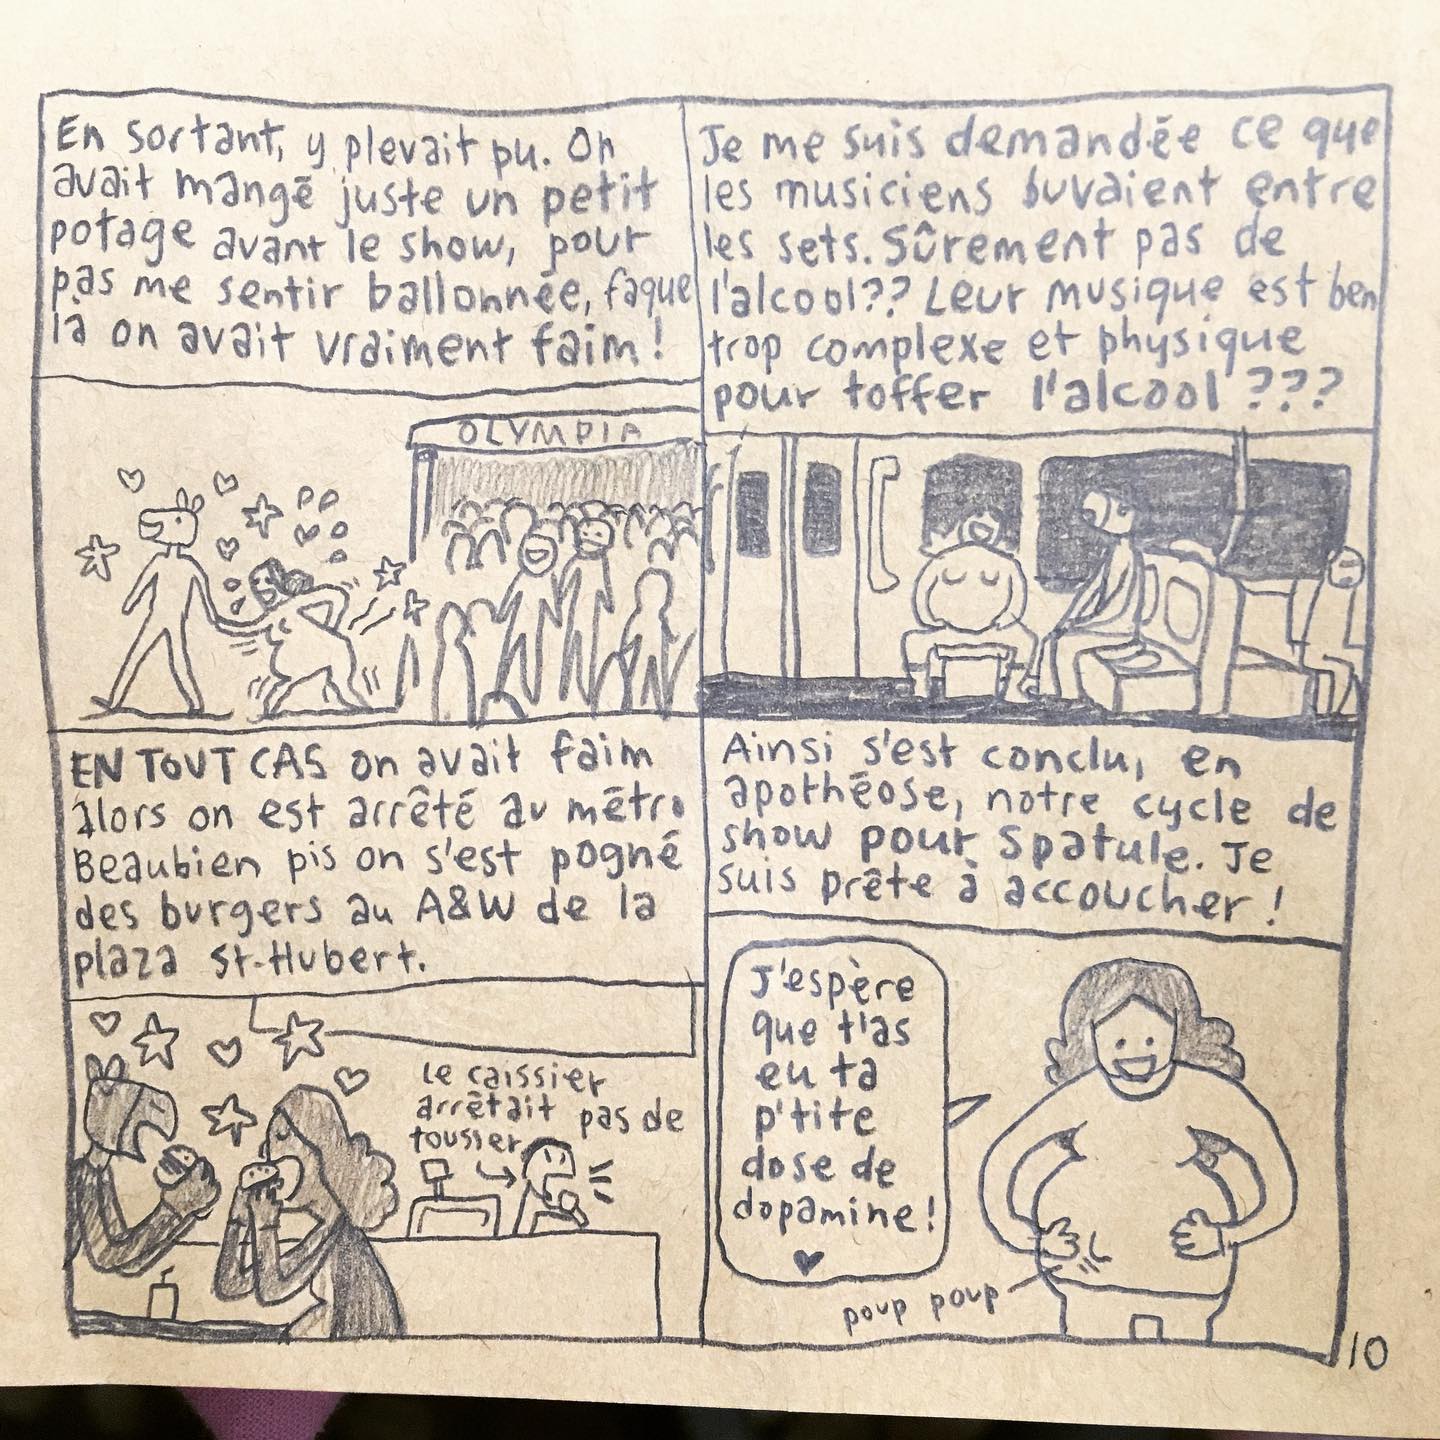 En sortant, y plevait pu. On
avait mangé juste un petit
potage avant le show, pour
pas me sentir ballonnée, faque
là on avait vraiment faim !
OLYMPIA
Je me suis demandée ce que
les musiciens buvaient entre
les sets. Sûrement pas de
l'alcool?? Leur musique est ben
trop complexe et physique
pour toffer l'alcool ???
EN TOUT CAS on avait faim
alors on est arrêté au métro
Beaubien pis on s'est pogné
des burgers au A&W de la
plaza St-Hubert.
Le caissier
arrêtait pas de
tousser
Ainsi s'est conclu, en
apothéose, notre cycle de
show pour Spatule. Je
suis prête à accoucher !
J'espère
que t'as
eu ta
p'tite
dose de
dopamine !
poup poup
10